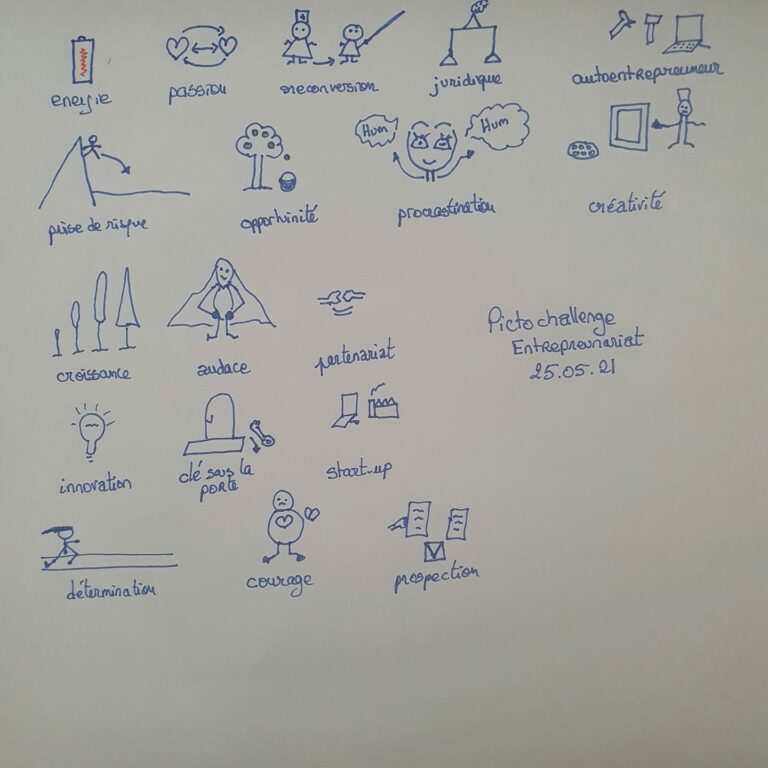 energie
passion
reconversion
juridique
autoentrepreuneur
Hum
Hum
prise de risque
opportunité
procrastination
créativité
croissance
audace
partenariat
Picto challenge
Entrepreunariat
25.05.21
innovation
clé sous la
porte
start-up
détermination
courage
prospection